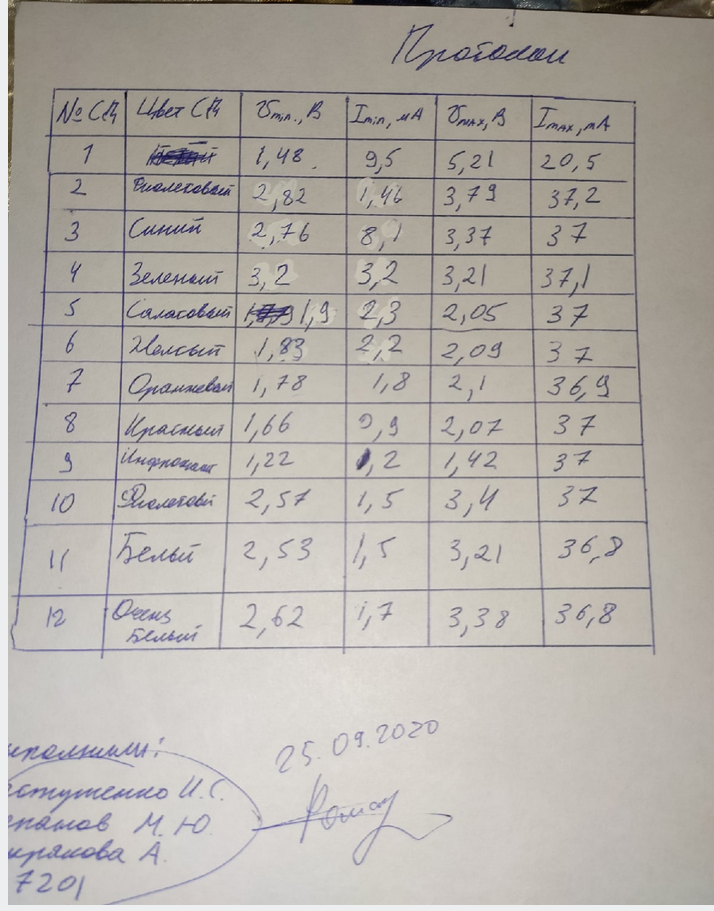 Протокол
№ СД Цвет СД Umin., В Imin, мА Umax, В Imax, mA
1 1,48 9,5 5,21 20,5
2 Фиолетовый 2,82 1,46 3,79 37,2
3 Синий 2,76 8,1 3,37 37
4 Зеленый 3,2 3,2 3,21 37,1
5 Салатовый 1,9 2,3 2,05 37
6 Желтый 1,83 2,2 2,09 37
7 Оранжевый 1,78 1,8 2,1 36,9
8 Красный 1,66 0,9 2,07 37
9 1,22 1,42 37
10 Фиолетовый 2,57 1,5 3,4 37
11 Белый 2,53 1,5 3,21 36,8
12 Очень 2,62 1,7 3,38 36,8
Белый
25.09.2020
ыполнили:
И.С.
М.Ю.
А.
7201